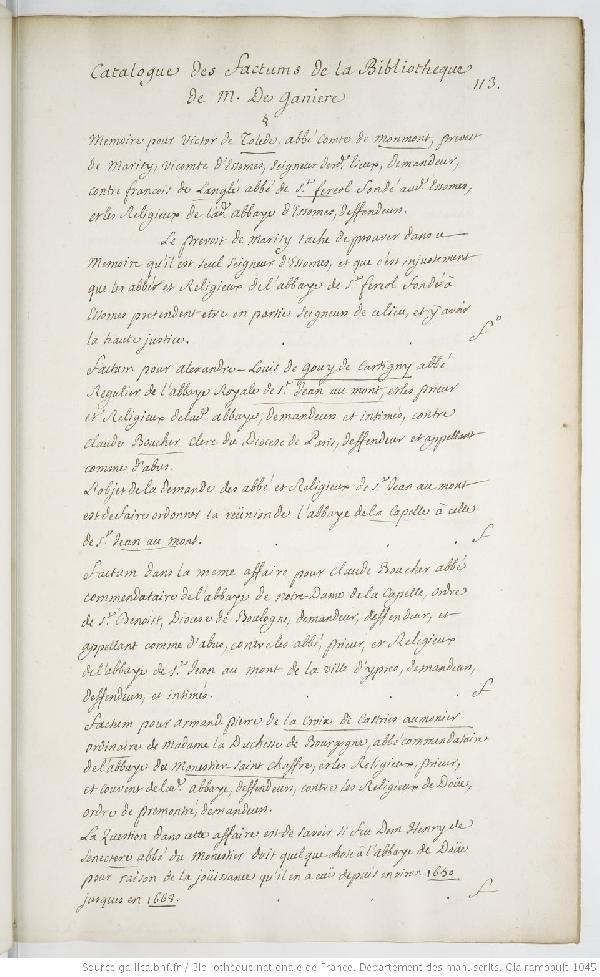 Catalogue des Factums de la Bibliotheque
113.
de M. De Ganiere
§
Memoire pour Victor de Tolede, abbé Comte de Monmont, prevost
de Marisy, Vicomte d'Essomes, Seigneur desd. lieux, demandeur,
contre francois de Langle abbé de St. fereol fondé aud. Essomes,
et les Religieux de lad. abbaye d'Essomes, deffendeurs.
Le prevost de Marisy tache de prouver dans ce
Memoire qu'il est seul Seigneur d'Essomes, et que c'est injustement
que les abbés et Religieux de l'abbaye de St. fereol fondés à
Essomes pretendent etre en partie seigneur de ce lieu, et y avoir
la haute justice. . . . fo
Factum pour alexandre-Louis de Gouy de Cartigny abbé
Regulier de l'abbaye Royale de St. Jean au mont, et les prieur
et Religieux de lad. abbaye, demandeurs et intimés, contre
Claude Boucher clerc du Diocese de Paris, deffendeur et appellant
comme d'abus.
L'objet de la demande des abbé et Religieux de St. Jean au mont
est de faire ordonner la reünion de l'abbaye de la Capelle à celle
de St. Jean au mont. . . . f
Factum dans la meme affaire pour Claude Boucher abbé
commendataire de l'abbaye de notre-Dame de la Capelle, ordre
de St. Benoist, Diocese de Boulogne, demandeur, deffendeur, et
appellant comme d'abus, contre les abbé, prieur, et Religieux
de l'abbaye de St. Jean au mont de la ville d'ypres, demandeurs,
deffendeurs, et intimés. . . . f
Factum pour armand pierre de la Croix de Castries aumonier
ordinaire de Madame la Duchesse de Bourgogne, abbé commendataire
de l'abbaye du Monestier saint Chaffre, et les Religieux, prieur,
et couvent de lad. abbaye, deffendeurs, contre les Religieux de Doüe,
ordre de premontré, demandeurs.
La Question dans cette affaire est de savoir si feu Dom Henry de
Senectere abbé du Monestier doit quelque chose à l'abbaye de Doüe
pour raison de la joüissance qu'il en a eüe depuis environ 1650
jusques en 1668. . . . f
Source gallica.bnf.fr / Bibliothèque nationale de France. Département des manuscrits. Clairambault 1045